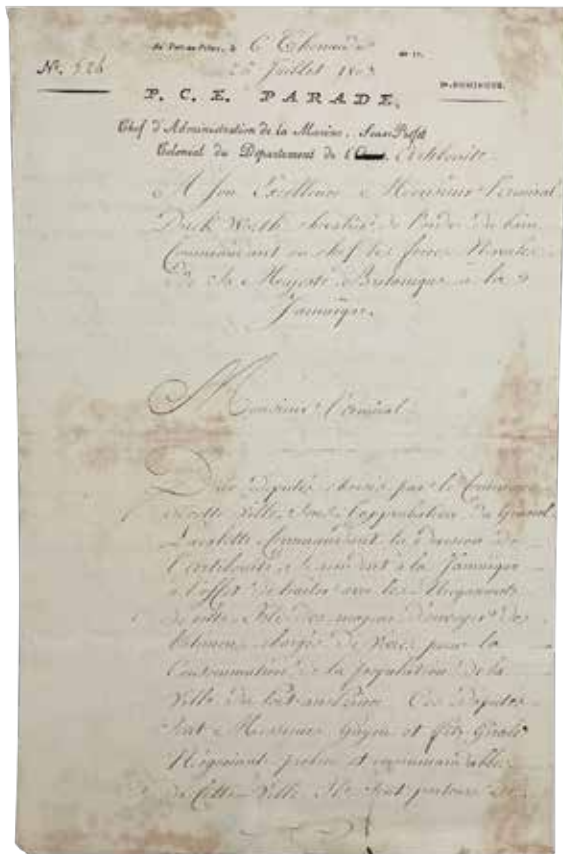 Au Port-au-Prince, le 6 Thermidor an 11.
N.º 526
25 Juillet 1803
St-DOMINGUE.
P. C. E. PARADE,
Chef d'Administration de la Marine, Sous-Préfet
Colonial du Département de l' Artibonite
A Son Excellence Monsieur l'amiral
Duckworth chevalier de l'ordre du bain
Commandant en chef les forces Navales
De Sa Majesté Britanique à la
Jamaïque.
Monsieur l'amiral
Deux députés choisis par le Commerce
de cette ville, sous l'approbation du Général
Lavalette Commandant la division de
l'artibonite se rendent à la Jamaïque
à l'effet de traiter avec les Négociants
de cette Isle des moyens d'envoyer des
batimens chargés de pour la
Consommation de la population de la
Ville du Port-au-Prince. Ces députés
sont Messieurs et fitz Gerald
Négociants probes et recommandables
de Cette Ville. Ils sont porteurs de